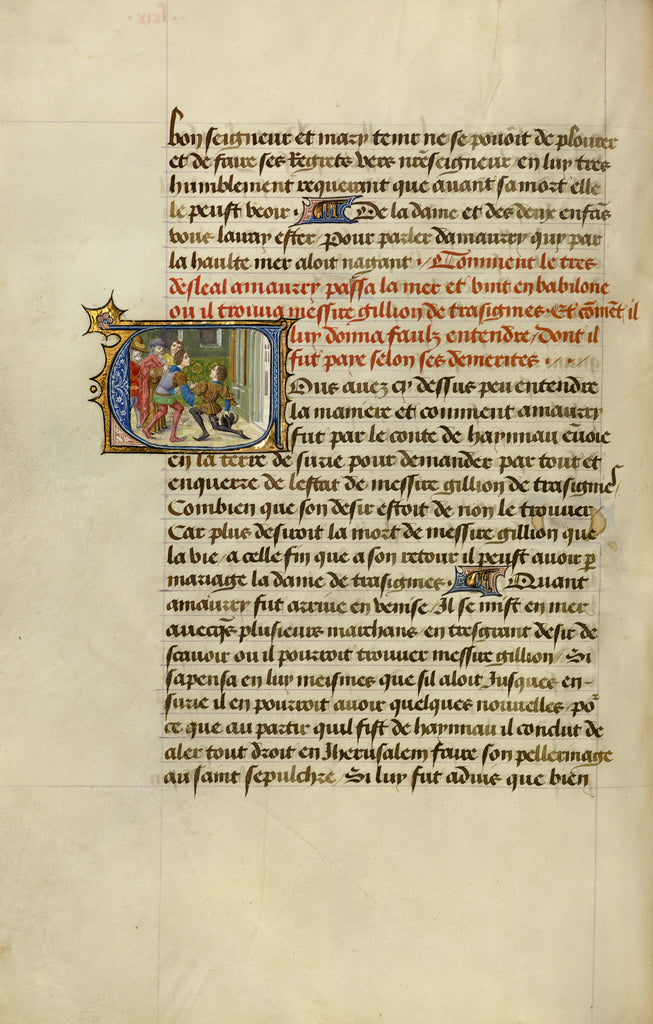 bon seigneur et mary temr ne se povoit de plourer
et de faire ses Regretz vers nrẽseigneur en luy tres
humblement requerant que avant sa mort elle
le peust veoir · De la dame et des deux enfãs
vous lauray ester / Pour parler damaurry quy par
la haulte mer aloit nagant · Comment le tres
desleal amaurry passa la mer et vint en babilone
ou il trouva messire gillion de trasignies · Et cõmẽt il
luy donna faulx entendre / Dont il
fut paye selon ses demerites · · · ·
Vous avez cy dessus peu entendre
la maniere et comment amaurry
fut par le conte de haynnau ẽuoie
en la terre de surie pour demander par tout et
enquerre de lestat de messire gillion de trasignies
Combien que son desir estoit de non le trouver /
Car plus desiroit la mort de messire gillion que
la vie / a celle fin que a son retour il peust avoir p
mariage la dame de trasignies · Quant
amaurry fut arrive en venise / Il se mist en mer
avecq̃s plusieurs marchans / en tresgrant desir de
scavoir ou il pourroit trouver messire gillion / Si
sapensa en luy meismes que sil aloit Jusques en-
surie il en pourroit avoir quelques nouvelles / po²
ce que au partir quil fist de haynnau il conclut de
aler tout droit en Jherusalem faire son pellermage
au saint sepulchre / Si luy fut advis que bien